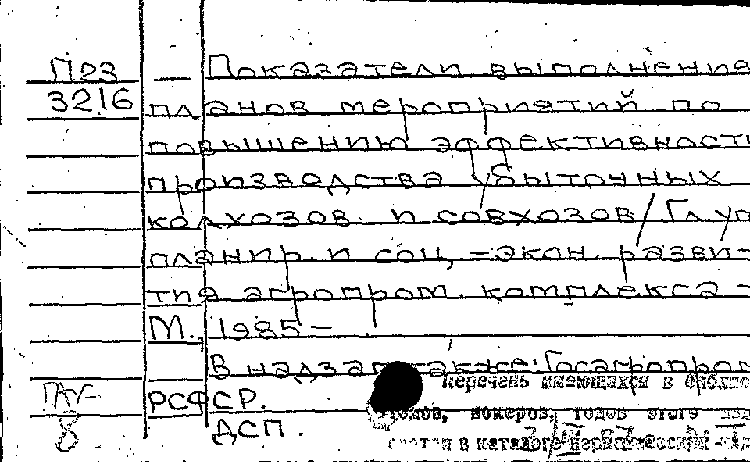 П23 — Показатели выполнение
3216 планов мероприятий по
повышению эффективност
производства убыточных
колхозов и совхозов/Гл. уп
планир. и соц.-экон. разви-
тия агропром. комплекса –
М., 1985 –
В надзаг. также: Госагропром
РСФСР.
ДСП.
Перечень имеющихся в библио
томов, номеров, годов этого изд
в каталоге